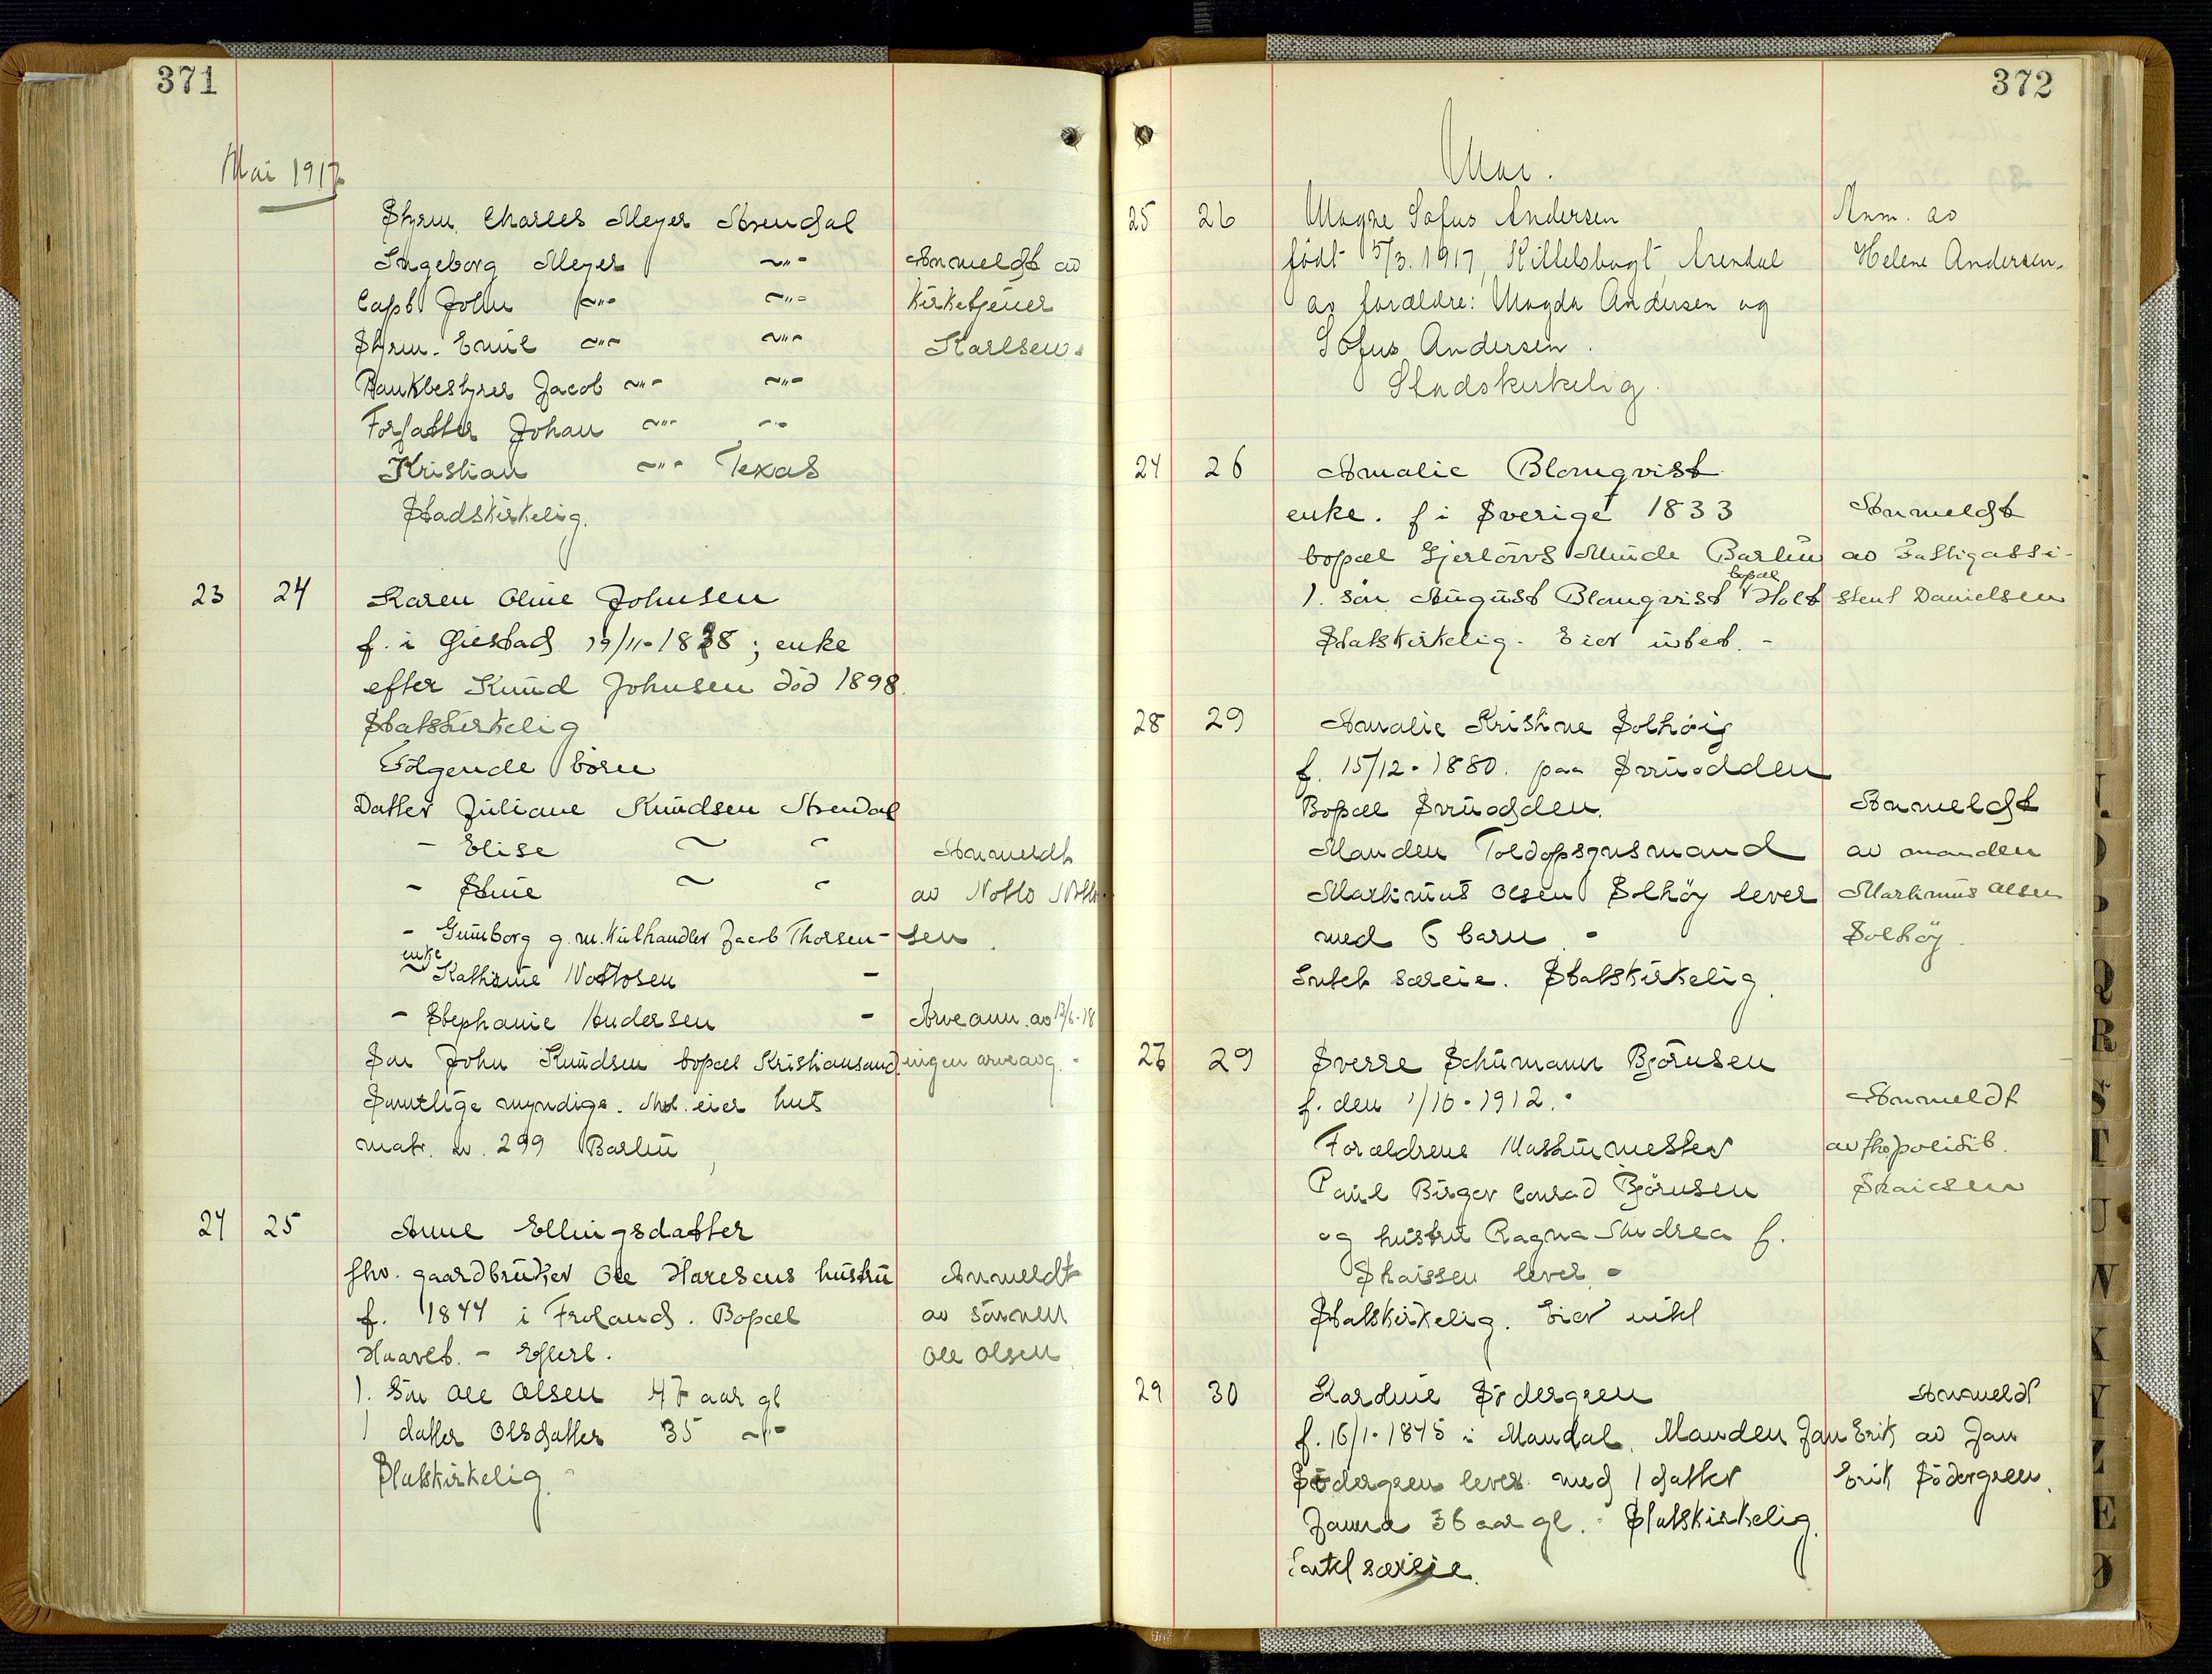 371
Mai 1917
Skprm. Charles Meyer Arendal
Ingeborg Meyer —"—
Anmeldt av
Capt John —"— —"—
Kirketjener
Emil —"— —"—
Karlsen.
Bankbestyrer Jacob —"— —"—
Forfatter Johan —"— —"—
Kristian —"— Texas
Stadskirkelig.
23 24 Karen Oline Johnsen
f. i Giestad 19/11-1838; enke
efter Knud Johnsen död 1898.
Statskirkelig
Fölgende börn
Datter Juliane Knudsen Arendal
- Elise ~ "
Anmeldt
- Stine ~ "
av Notto Notto-
- Gunborg g. m. Kulhandler Jacob Thorsen -
sen.
enke
- Kathrine Nottosen -
- Stephanie Andersen -
Arveanm. av 17/6-18
Sön John Knudsen bopæl Kristiansand.
ingen arveavg.
Samtlige myndige. Avd. eier hus
matr. nr. 299 Barbu
24 25 Anne Ellingsdatter
fhv. gaardbruker Ole Haresens hustru
Anmeldt
f. 1844 i Froland. Bopæl
av sönnen
Haaveb. - Efterl.
Ole Olsen
1. Sön Ole Olsen 47 aar gl
1 datter Olsdatter 35 —"—
Statskirkelig.
372
Mai.
25 26 Magne Sofus Andersen
Anm. av
födt 15/3. 1917, Kittelsbugt Arendal
Helene Andersen.
av forældre: Magda Andersen og
Sofus Andersen.
Stadskirkelig.
24 26 Amalie Blomqvist
enke. f i Sverige 1833
Anmeldt
bopæl Gjerlövs Minde Barbu
av Fattigassi-
bopæl
1. sön August Blomqvist Holt
stent Danielsen
Statskirkelig. Eier intet. -
28 29 Amalie Kristine Solhöig
f. 15/12-1880. paa Snuodden
Bopæl Snuodden.
Anmeldt
Manden Toldopsynsmand
av manden
Martinius Olsen Solhöy lever
Martinius Olsen
med 6 barn. -
Solhöy.
Intet særeie. Statskirkelig.
29 Sverre Schumann Björnsen
f. den 1/10-1912.
Anmeldt
Forældrene Maskinmester
av fhv. politib.
Paul Birger Conrad Björnsen
Skaiesen
og hustru Ragna Andrea f.
Skaissen lever. -
Statskirkelig. Eier intet
29 30 Karoline Södergren
Anmeldt
f. 16/1-1845 i Mandal. Manden Jan Erik
av Jan
Södergren lever med 1 datter
Erik Södergren.
Janna 36 aar gl. - Statskirkelig.
Intet særeie.